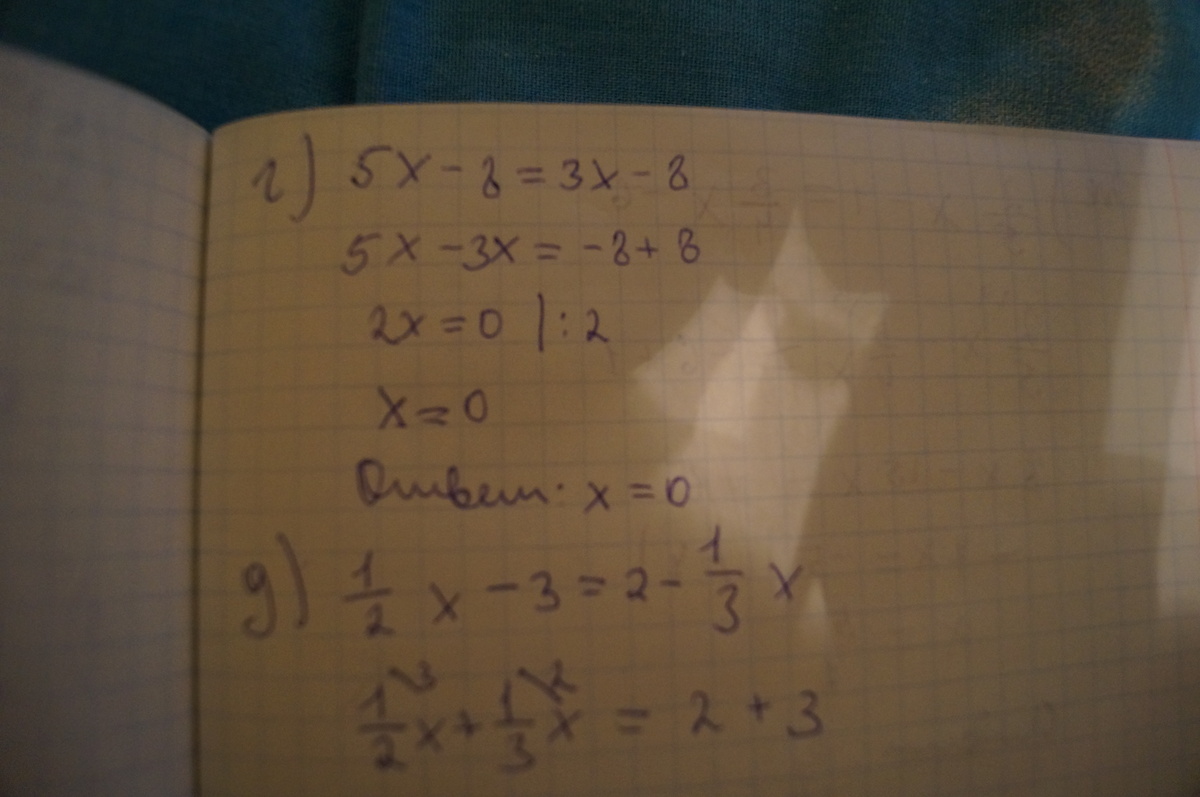 г) 5x - 8 = 3x - 8
5x - 3x = -8 + 8
2x = 0 | : 2
x = 0
Ответ: x = 0
д) 1/2 x - 3 = 2 - 1/3 x
1/2 \3 x + 1/3 \2 x = 2 + 3